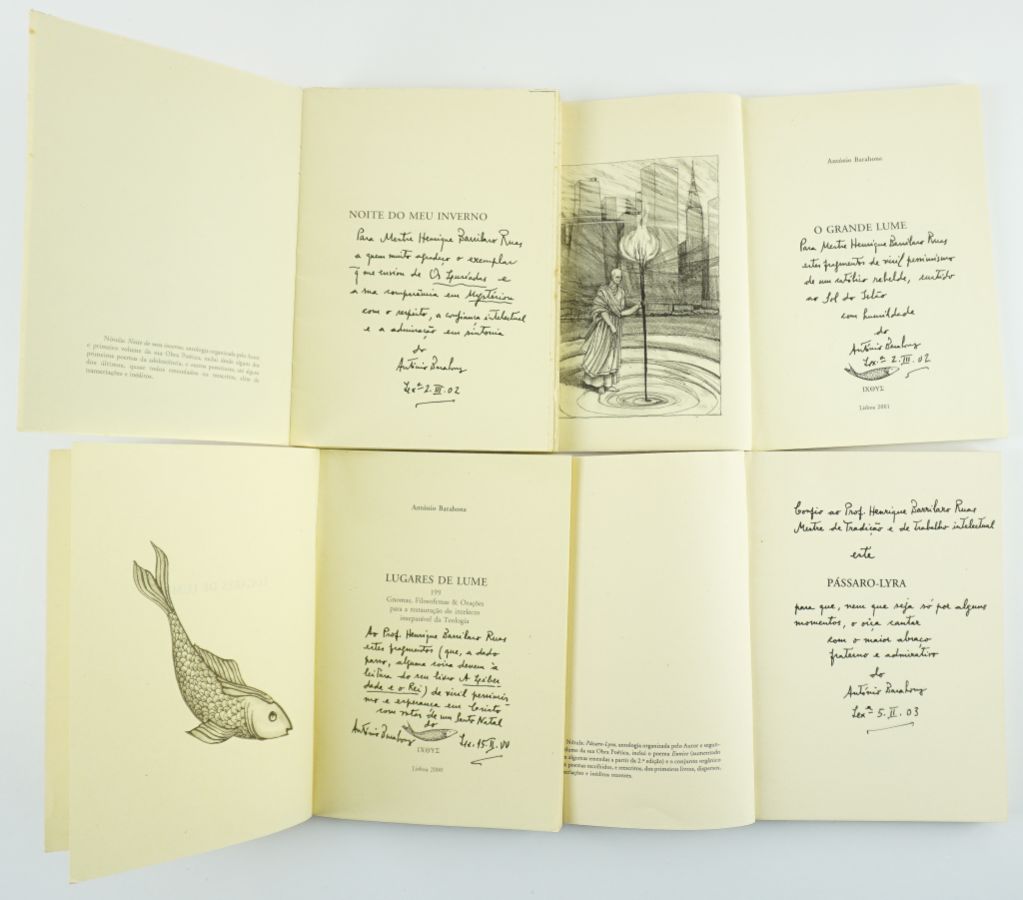 NOITE DO MEU INVERNO
Para Mestre Henrique Barrilaro Ruas
a quem muito agradeço o exemplar
q̃ me enviou de Os Lusíadas e
a sua comparência em Mystérion
com o respeito, a confiança intelectual
e a admiração em sintonia
do
António Barahona
Lxª 2.III.02
Nótula: Noite do meu inverno, antologia organizada pelo Autor
e primeiro volume da sua Obra Poética, inclui ainda alguns dos
primeiros poemas da adolescência, e outros posteriores, até alguns
dos últimos, quase todos remodelados ou reescritos, além de
transcriações e inéditos.
António Barahona
O GRANDE LUME
Para Mestre Henrique Barrilaro Ruas
estes fragmentos de viril pessimismo
de um católico rebelde, curtido
ao Sol do Islão
com humildade
do
António Barahona
Lxª 2.III.02
ΙΧΘΥΣ
Lisboa 2001
António Barahona
LUGARES DE LUME
199
Gnomas, Filosofemas & Orações
para a restauração do interlocutor
inseparável da Teologia
Ao Prof. Henrique Barrilaro Ruas
estes fragmentos (que, a dado
passo, alguma coisa devem à
leitura do seu livro A Liber
dade e o Rei) de viril pessimis
mo e esperança em Cristo
com votos de um Santo Natal
do
António Barahona
ΙΧΘΥΣ
Lisboa 2000
Confio ao Prof. Henrique Barrilaro Ruas
Mestre de Tradição e de Trabalho intelectual
este
PÁSSARO-LYRA
para que, nem que seja só por alguns
momentos, o oiça cantar
com o maior abraço
fraterno e admirativo
do
António Barahona
Lxª 5.II.03
Nótula: Pássaro-Lyra, antologia organizada pelo Autor e segun-
volume da sua Obra Poética, inclui o poema Eunice (aumentado
algumas emendas a partir da 2.ª edição) e o conjunto orgânico
poemas escolhidos, e reescritos, dos primeiros livros, dispersos,
criações e inéditos recentes.